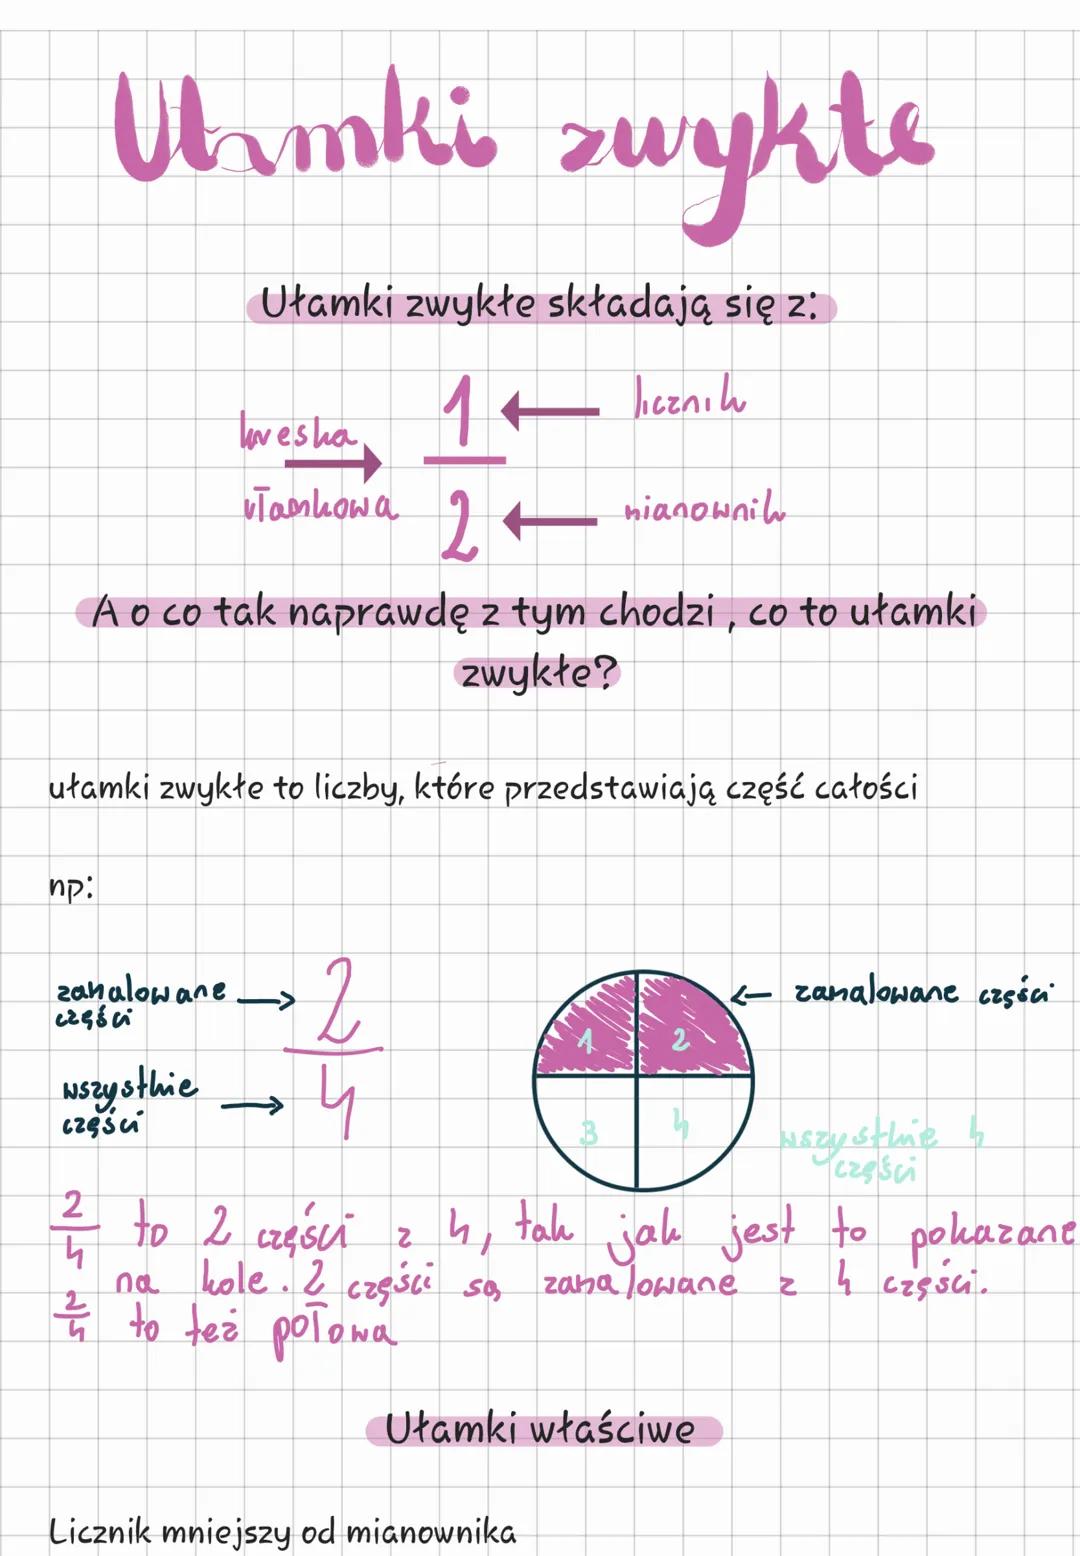 Ułamki zwykłe
Ułamki zwykłe składają się z:
1 licznik
kreska
ułamkowa
2 mianownik
A o co tak naprawdę z tym chodzi, co to ułamki
zwykłe?
ułamki zwykłe to liczby, które przedstawiają część całości
np:
zamalowane
części
2
wszystkie
części
4
1 2
3 4
zamalowane części
wszystkie 4
części
2/4 to 2 części z 4, tak jak jest to pokazane
na kole. 2 części są zamalowane z 4 części.
2/4 to też połowa
Ułamki właściwe
Licznik mniejszy od mianownika